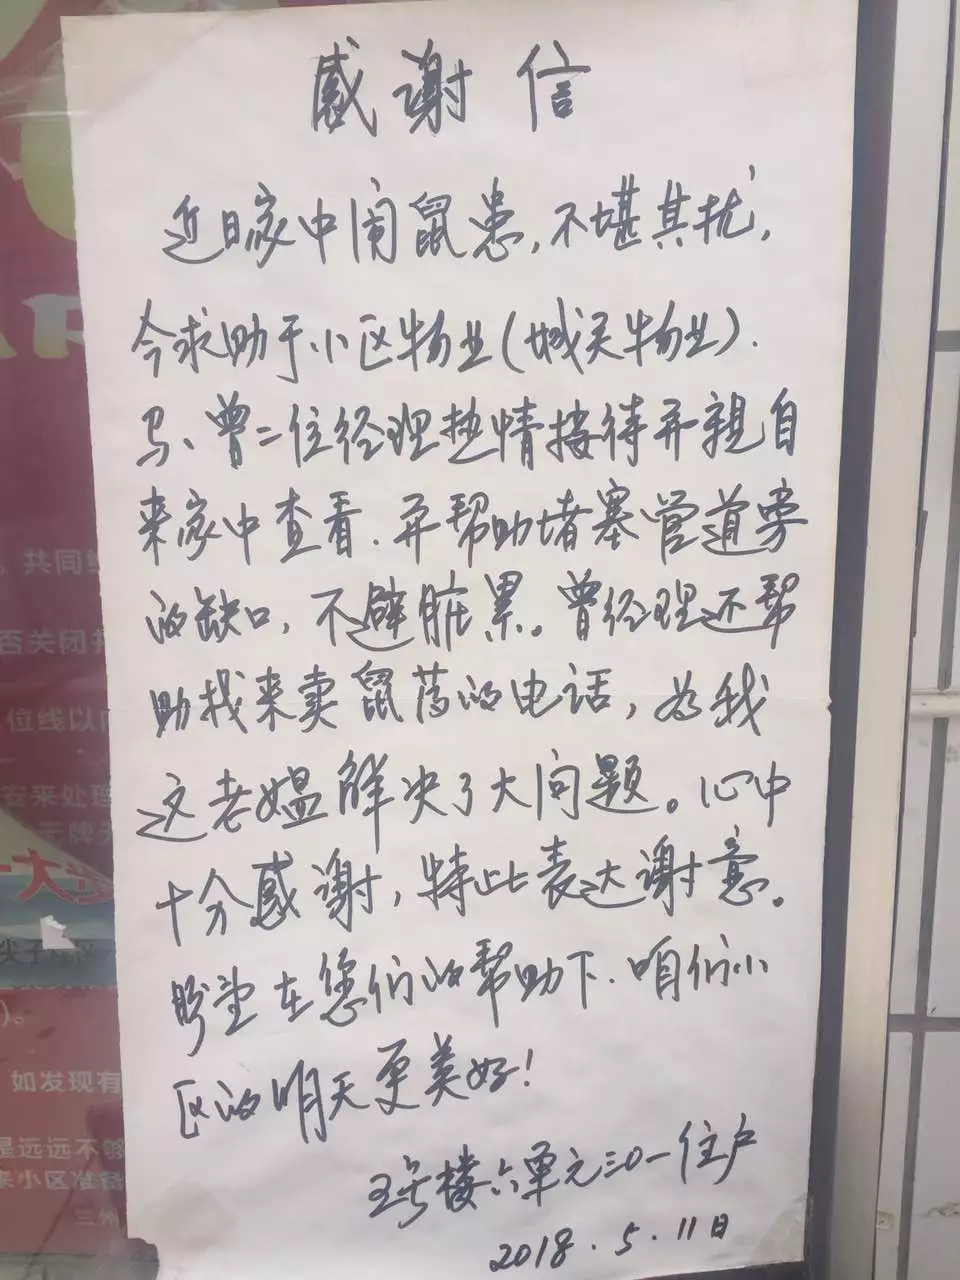 感谢信
近日家中闹鼠患,不堪其扰,
今求助于小区物业(城关物业).
马、曾二位经理热情接待并亲自
来家中查看.并帮助堵塞管道旁
的缺口,不避脏累。曾经理还帮
助找来卖鼠药的电话,为我
这老媪解决了大问题。心中
十分感谢,特此表达谢意。
盼望在您们的帮助下.咱们小
区的明天更美好!
五号楼六单元三0一住户
2018.5.11日
AR
共同
否关闭
位线以
安来处理
大
如发现有
是远远不够
来小区准备
兰州